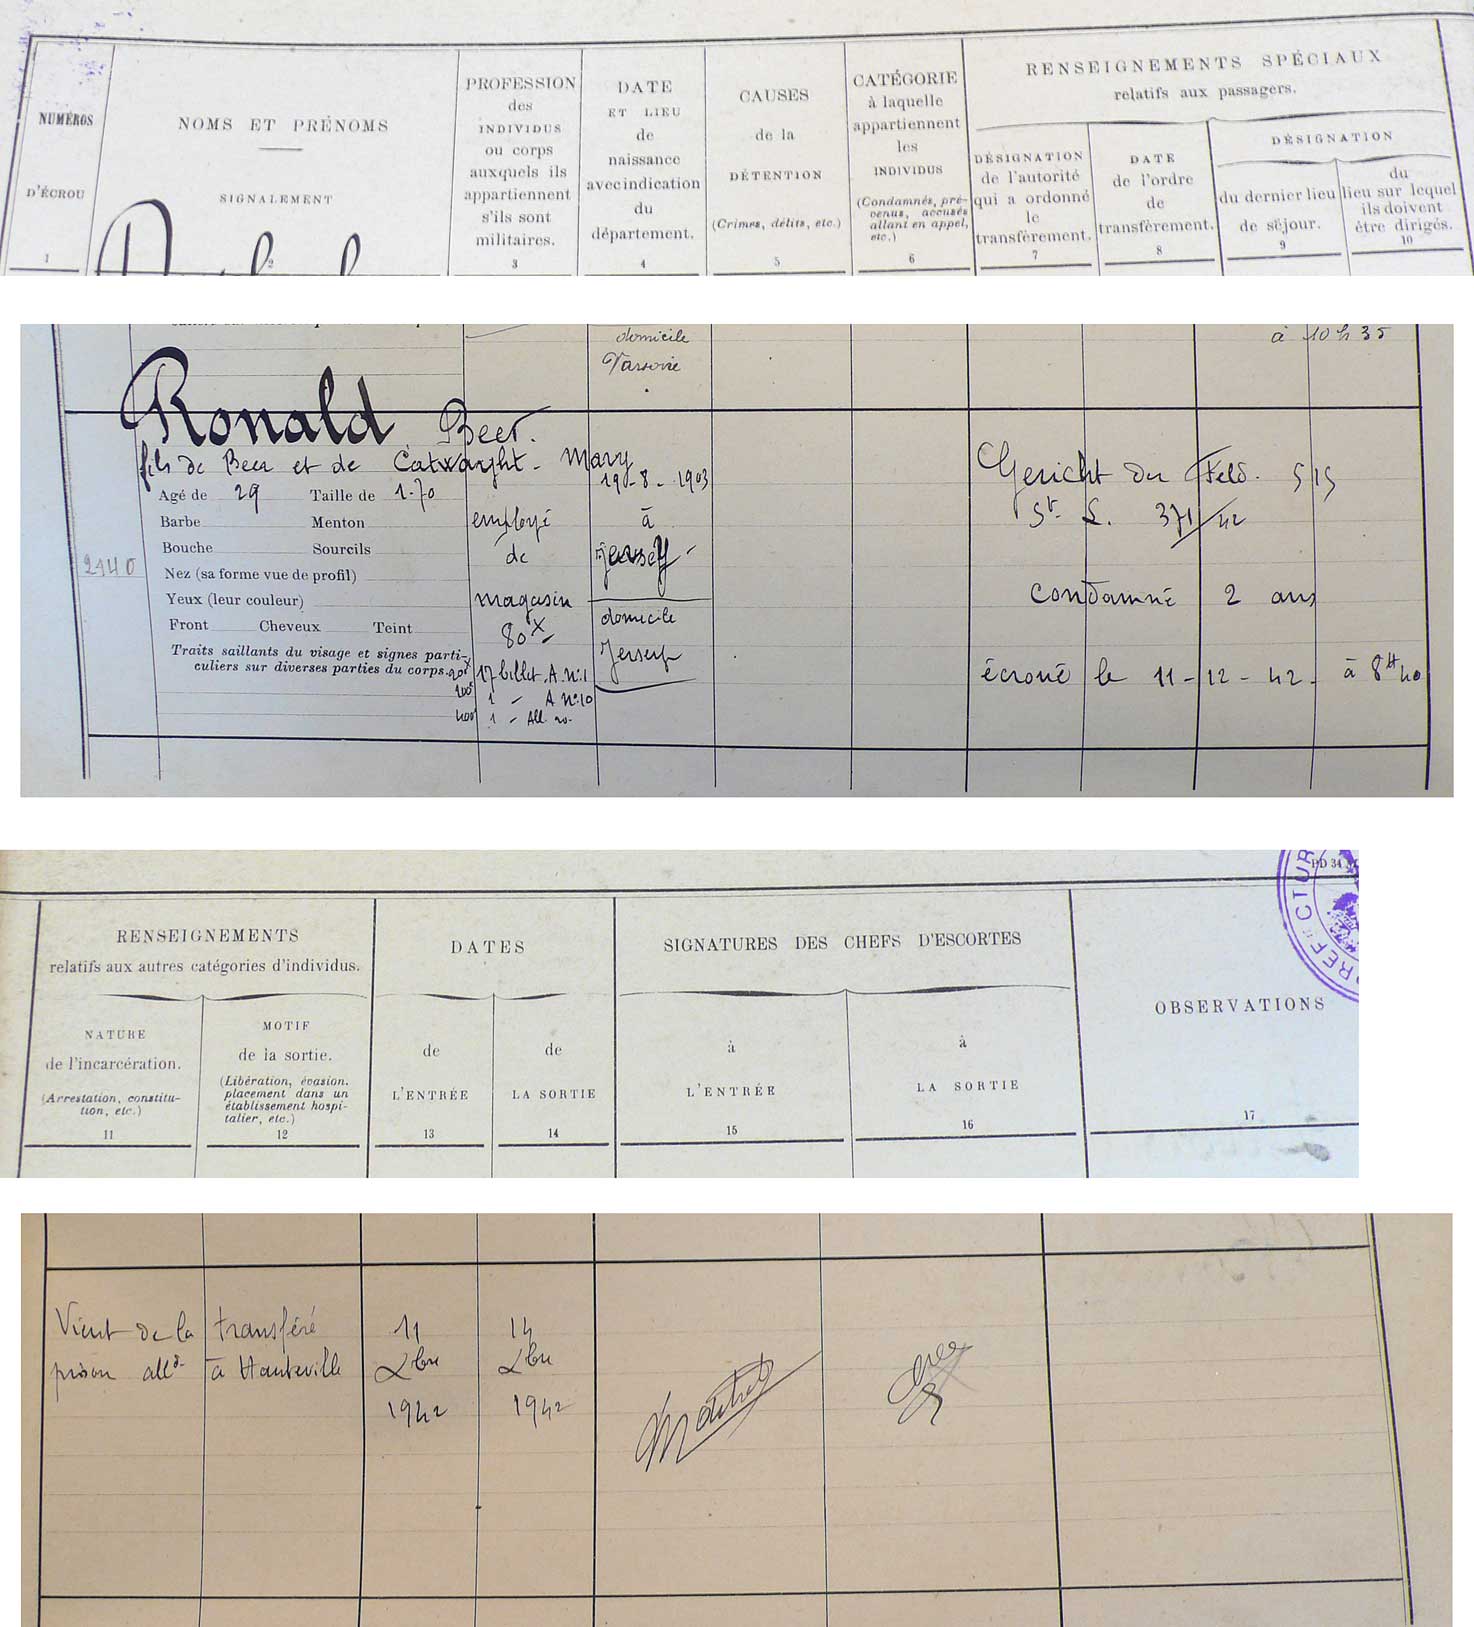 NUMÉROS
D'ÉCROU
1
NOMS ET PRÉNOMS
SIGNALEMENT
2
PROFESSION
des
INDIVIDUS
ou corps
auxquels ils
appartiennent
s'ils sont
militaires.
3
DATE
ET LIEU
de
naissance
avec indication
du
département.
4
CAUSES
de la
DÉTENTION
(Crimes, délits, etc.)
5
CATÉGORIE
à laquelle
appartiennent
les
INDIVIDUS
(Condamnés, pré-
venus, accusés
allant en appel,
etc.)
6
RENSEIGNEMENTS SPÉCIAUX
relatifs aux passagers.
DÉSIGNATION
de l'autorité
qui a ordonné
le
transfèrement.
7
DATE
de l'ordre
de
transfèrement.
8
DÉSIGNATION
du dernier lieu
de séjour.
9
du
lieu sur lequel
ils doivent
être dirigés.
10
domicile
Varsovie
à 10 h 35
Ronald Beer.
fils de Beer et de Catwaght - Mary
2140
Agé de 29 Taille de 1-70
Barbe Menton
Bouche Sourcils
Nez (sa forme vue de profil)
Yeux (leur couleur)
Front Cheveux Teint
Traits saillants du visage et signes parti-
culiers sur diverses parties du corps.
employé
de
magasin
80x
17 billet. A. n°:1
1 - A n°:10
1 - All. 20.
19-8-1903
à
Jersey
domicile
Jersey
Gericht der Feld. 515
St. L. 371/42
condamné 2 ans
écroué le 11-12-42. à 8H40
RENSEIGNEMENTS
relatifs aux autres catégories d'individus.
NATURE
de l'incarcération.
(Arrestation, constitu-
tion, etc.)
11
MOTIF
de la sortie.
(Libération, évasion.
placement dans un
établissement hospi-
talier, etc.)
12
DATES
de
L'ENTRÉE
13
de
LA SORTIE
14
SIGNATURES DES CHEFS D'ESCORTES
à
L'ENTRÉE
15
à
LA SORTIE
16
OBSERVATIONS
17
PD 34
PREFECTUR
Vient de la
prison alld.
transféré
à Hauteville
11
Xbre
1942
14
Xbre
1942